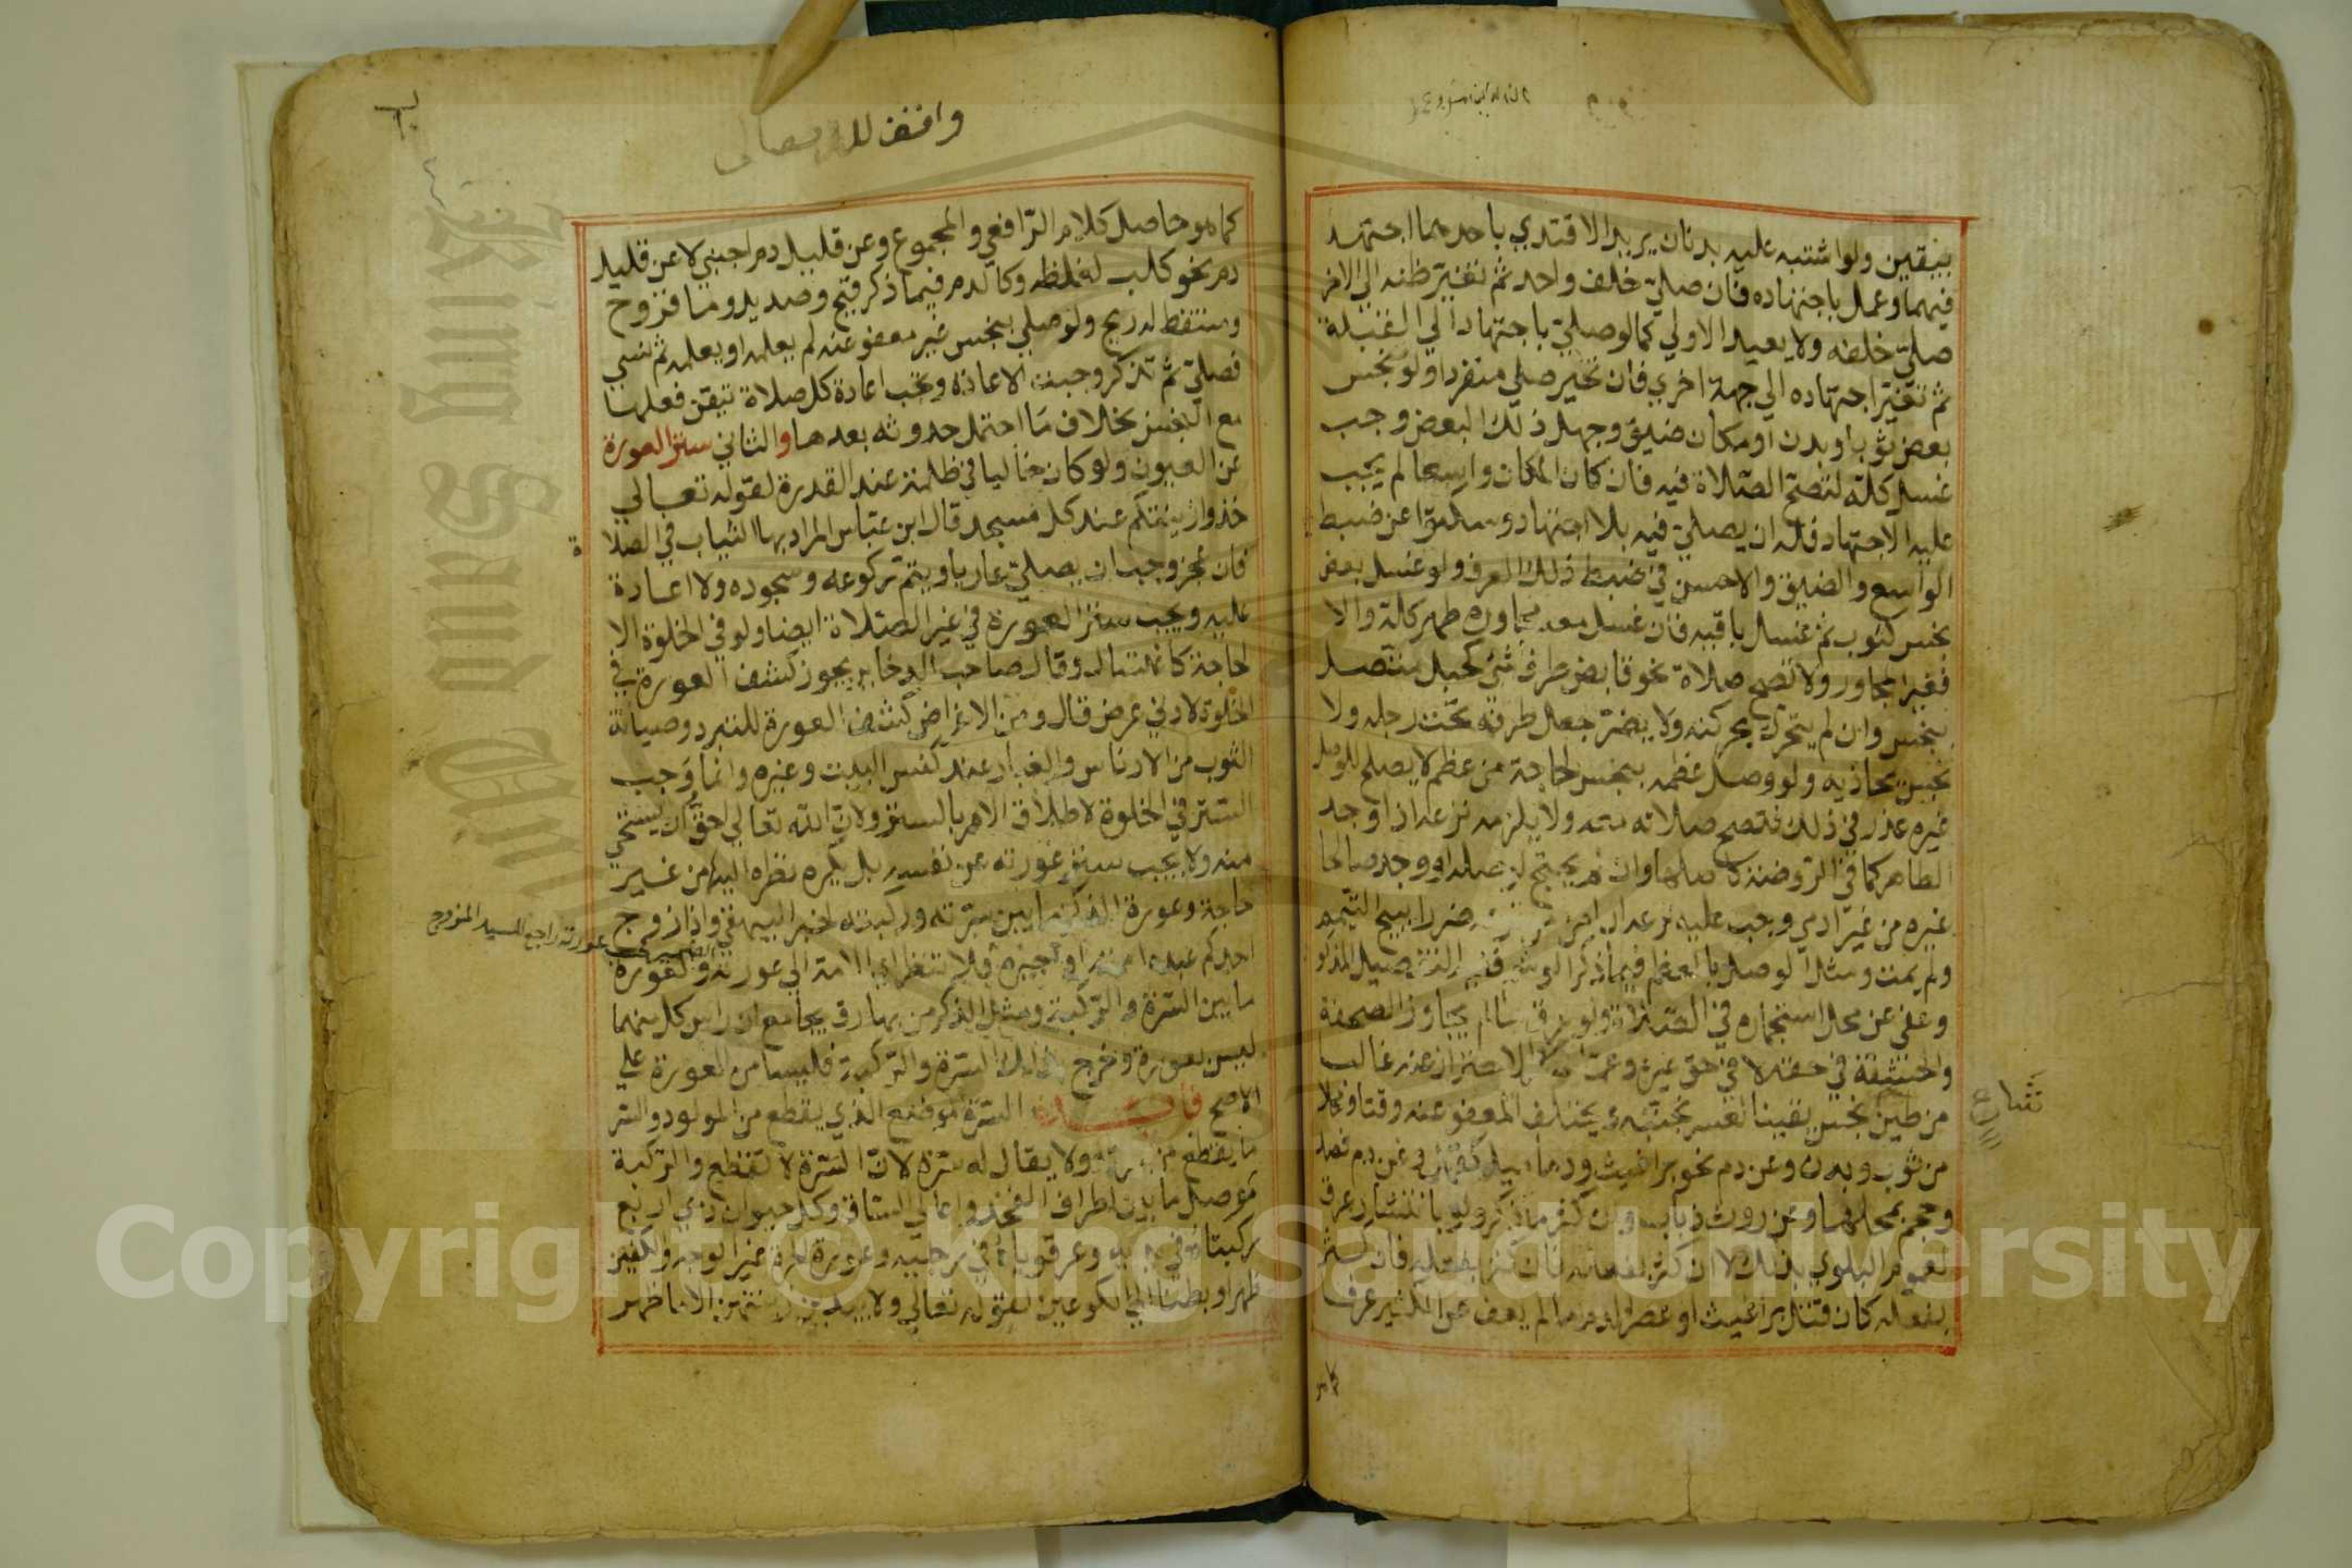 بيقين ولو اشتبه عليه بدنان يريد الاقتدي باحدهما اجتهد
فيهما وعمل باجتهاده فان صلي خلف واحد ثم تغير ظنه الي الاخر
صلي خلفه ولا يعيد الاولي كما لو صلي باجتهاد الي القبلة
ثم تغير اجتهاده الي جهة اخري فان تحير صلي منفردا ولو نجس
بعض ثوب او بدن او مكان ضيق وجهل ذلك البعض وجب
غسل كله لتصح الصلاة فيه فان كان المكان واسعا لم يجب
عليه الاجتهاد فله ان يصلي فيه بلا اجتهاد وسكتوا عن ضبط
الواسع والضيق والاحسن في ضبط ذلك العرف ولو غسل بعض
نجس كثوب ثم غسل باقيه فان غسل معه مجاوره طهر كله والا
فغير المجاور ولا تصح صلاة نحو قابض طرف شئ كحبل متصل
بنجس وان لم يتحرك بحركته ولا يضر جعل طرفه تحت رجله ولا
نجس يحاذيه ولو وصل عظمه بنجس لحاجة من عظم لا يصلح للوصل
غيره عذر في ذلك فتصح صلاته معه ولا يلزمه نزعه اذا وجد
الطاهر كما في الروضة كاصلها وان لم يحتج لوصله او وجد صالحا
غيره من غير ادمي وجب عليه نزعه ان امن ضررا يبيح التيمم
ولم يمت ومثل الوصل بالعظم فيما ذكر الوشم ففيه التفصيل المذكو
وعفي عن محل استجماره في الصلاة ولو عرق مالم يجاوز الصفحة
والحشفة في حقه لا في حق غيره وعما الاحتراز عنه غالبا
من طين نجس يقينا لعسر تجنبه ويختلف المعفو عنه وقتا ومحلا
من ثوب وبدن وعن دم نحو براغيث ودماميل كقمل وعن دم فصد
وحجم بمحلهما وعن روث ذباب وان كثر ما ذكر ولو بانتشار عرق
لعموم البلوي بذلك لا ان كثر بفعله فان كثر بفعله
بفعله كان قتل براغيث او عصر الدم لم يعف عن الكثير عرفا
كما هو
شارع
واقف لله تعالى
كما هو حاصل كلام الرافعي والمجموع وعن قليل دم اجنبي لا عن قليل
دم نحو كلب لغلظه وكالدم فيما ذكر قيح وصديد وما قروح
ومتنفط له ريح ولو صلي بنجس غير معفو عنه لم يعلمه او يعلمه ثم نسي
فصلي ثم تذكر وجبت الاعادة وتجب اعادة كل صلاة تيقن فعلها
مع النجس بخلاف ما احتمل حدوثه بعدها والثاني ستر العورة
عن العيون ولو كان خاليا في ظلمة عند القدرة لقوله تعالي
خذوا زينتكم عند كل مسجد قال ابن عباس المراد بها الثياب في الصلا
ة
فان عجز وجب ان يصلي عاريا ويتم ركوعه وسجوده ولا اعادة
عليه ويجب ستر العورة في غير الصلاة ايضا ولو في الخلوة الا
لحاجة كاغتسال وقال صاحب الدخاير يجوز كشف العورة في
الخلوة لادني غرض قال ومن الاغراض كشف العورة للتبرد وصيانة
الثوب من الادناس والغبار عند كنس البيت وغيره وانما وجب
الستر في الخلوة لاطلاق الامر بالستر ولان الله تعالي احق ان يستحي
منه ولا يجب ستر عورته عن نفسه بل يكره نظره اليها من غير
حاجة وعورة الذكر ما بين سرته وركبته لخبر البيهقي واذا زوج
احدكم عبده امته او اجيره فلا تنظر اي الامة الي عورته والعورة
ما بين السرة والركبة ومثل الذكر من بها رق بجامع ان راس كل منهما
ليس بعورة وخرج بذلك السرة والركبة فليسا من العورة علي
الاصح فائدة السرة موضع الذي يقطع من المولود والسر
ما يقطع من سرته ولا يقال له سرة لان السرة لا تقطع والركبة
موصل ما بين اطراف الفخذ واعالي الساق وكل حيوان ذي اربع
ركبتاه في يديه وعرقوباه في رجليه وعورة حرة غير الوجه والكفين
ظهرا وبطنا الي الكوعين لقوله تعالي ولا يبدين زينتهن الا ما ظهر
الضمير في عورته راجع للسيد المزوج
Copyright © King Saud University
King Saud Uni